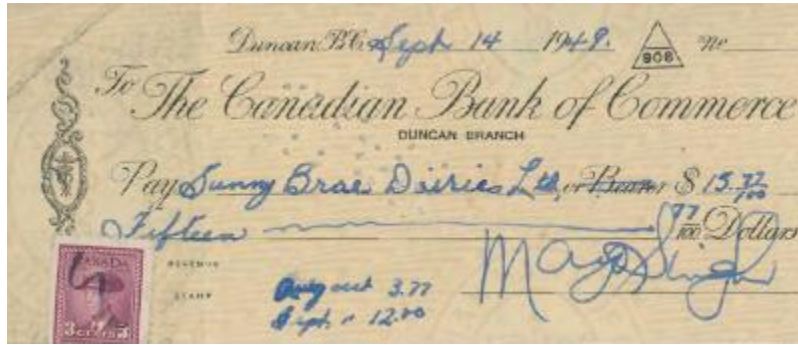 Duncan B.C. Sept 14 1949. 908 No
To The Canadian Bank of Commerce
DUNCAN BRANCH
Pay Sunny Brae Dairies Ltd. or Bearer $ 15.77/100
Fifteen 77/100 Dollars
CANADA REVENUE
STAMP
August 3.77
Mayo Singh
3 CENTS 3
Sept. " 12.00